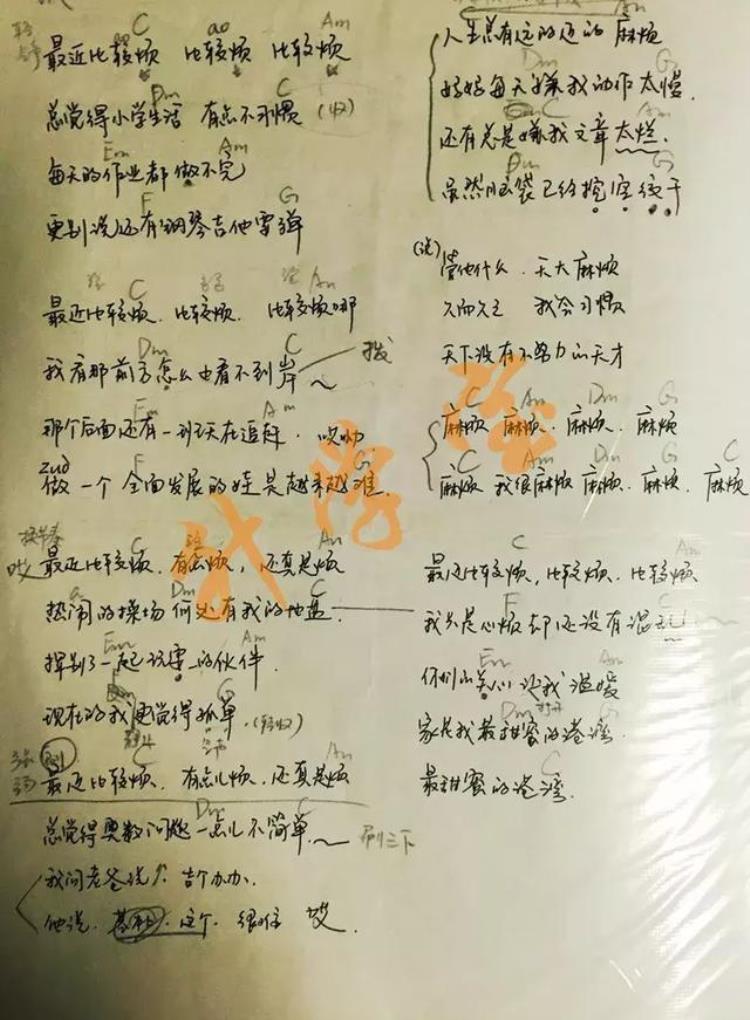 C Am
最近比较烦 比较烦 比较烦
Dm C
总觉得小学生活 有点不习惯 (收)
Em Am
每天的作业都做不完
F G
更别说还有钢琴吉他要弹
C Am
最近比较烦. 比较烦. 比较烦哪
Dm C
我看那前方怎么也看不到岸 拨
Em Am
那个后面还有一班天在追赶. 哎呦
zuò F G
做一个全面发展的娃是越来越难.
C Am
哎 最近比较烦. 有点烦, 还真是烦
Dm C
热闹的操场何处有我的地盘.
Em Am
挥别了一起玩耍的伙伴.
Dm G
现在的我更觉得孤单.
刷 C Am
最近比较烦. 有点儿烦. 还真是烦
Dm C
总觉得奥数问题一点儿不简单. 刷三下
我问老爸说, 咋个办办.
他说. 这个. 很难 哎.
Am
人生总有远的近的麻烦
Dm G
妈妈每天嫌我动作太慢.
C Am
还有总是嫌我文章太烂.
Dm G
虽然脑袋已经挖空绞干
(说) 管他什么. 天大麻烦
久而久之 我会习惯
天下没有不努力的天才
C Am Dm G
麻烦 麻烦. 麻烦. 麻烦
C Am Dm G C
麻烦 我很麻烦 麻烦. 麻烦. 麻烦
C Am
最近比较烦, 比较烦. 比较烦
F C
我只是心烦却还没有混乱
Em Am
你们的关心让我温暖
Dm G
家是我最甜蜜的港湾.
C
最甜蜜的港湾.